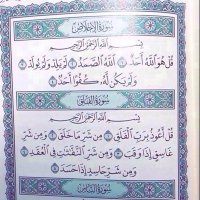 سُورَةُ الإِخْلَاصِ
بِسْمِ اللَّهِ الرَّحْمَٰنِ الرَّحِيمِ
قُلْ هُوَ اللَّهُ أَحَدٌ ۝ اللَّهُ الصَّمَدُ ۝ لَمْ يَلِدْ وَلَمْ يُولَدْ ۝
وَلَمْ يَكُن لَّهُ كُفُوًا أَحَدٌ ۝
سُورَةُ الفَلَقِ
بِسْمِ اللَّهِ الرَّحْمَٰنِ الرَّحِيمِ
قُلْ أَعُوذُ بِرَبِّ الْفَلَقِ ۝ مِن شَرِّ مَا خَلَقَ ۝ وَمِن شَرِّ
غَاسِقٍ إِذَا وَقَبَ ۝ وَمِن شَرِّ النَّفَّٰثَٰتِ فِي الْعُقَدِ ۝
وَمِن شَرِّ حَاسِدٍ إِذَا حَسَدَ ۝
سُورَةُ النَّاسِ